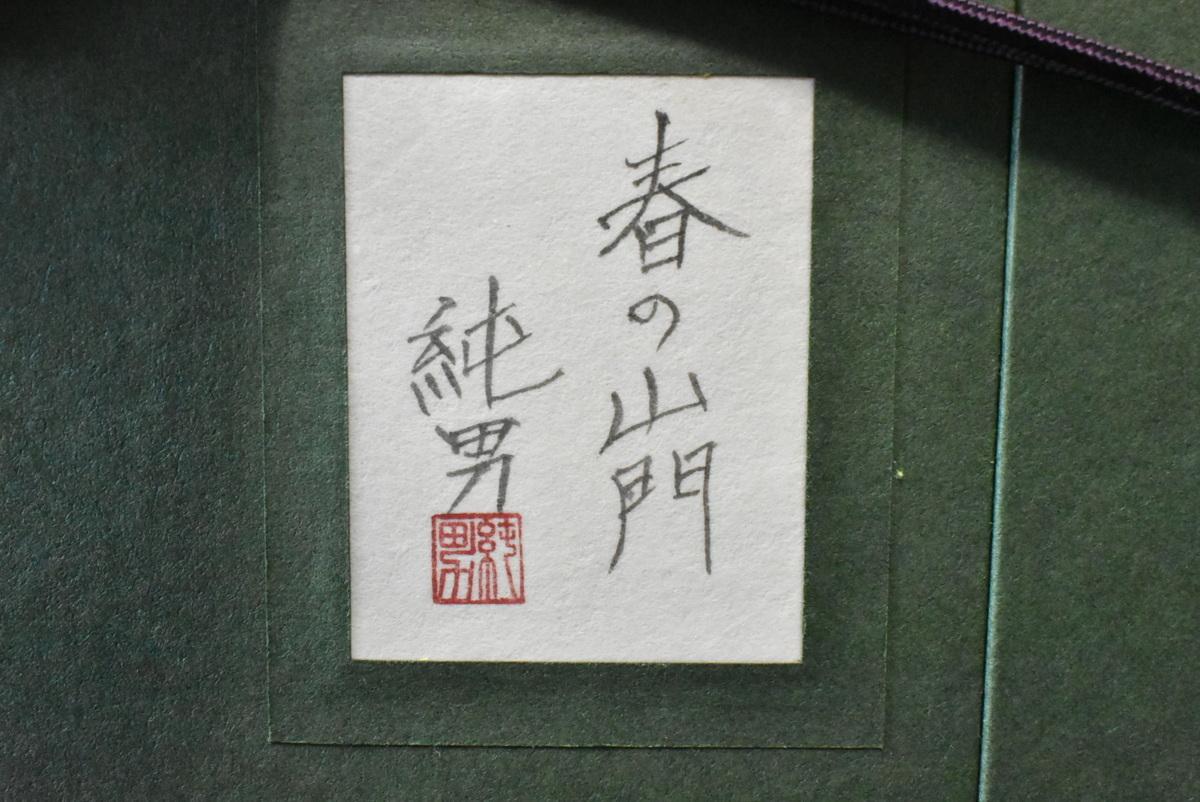 春の山門
純男
純男